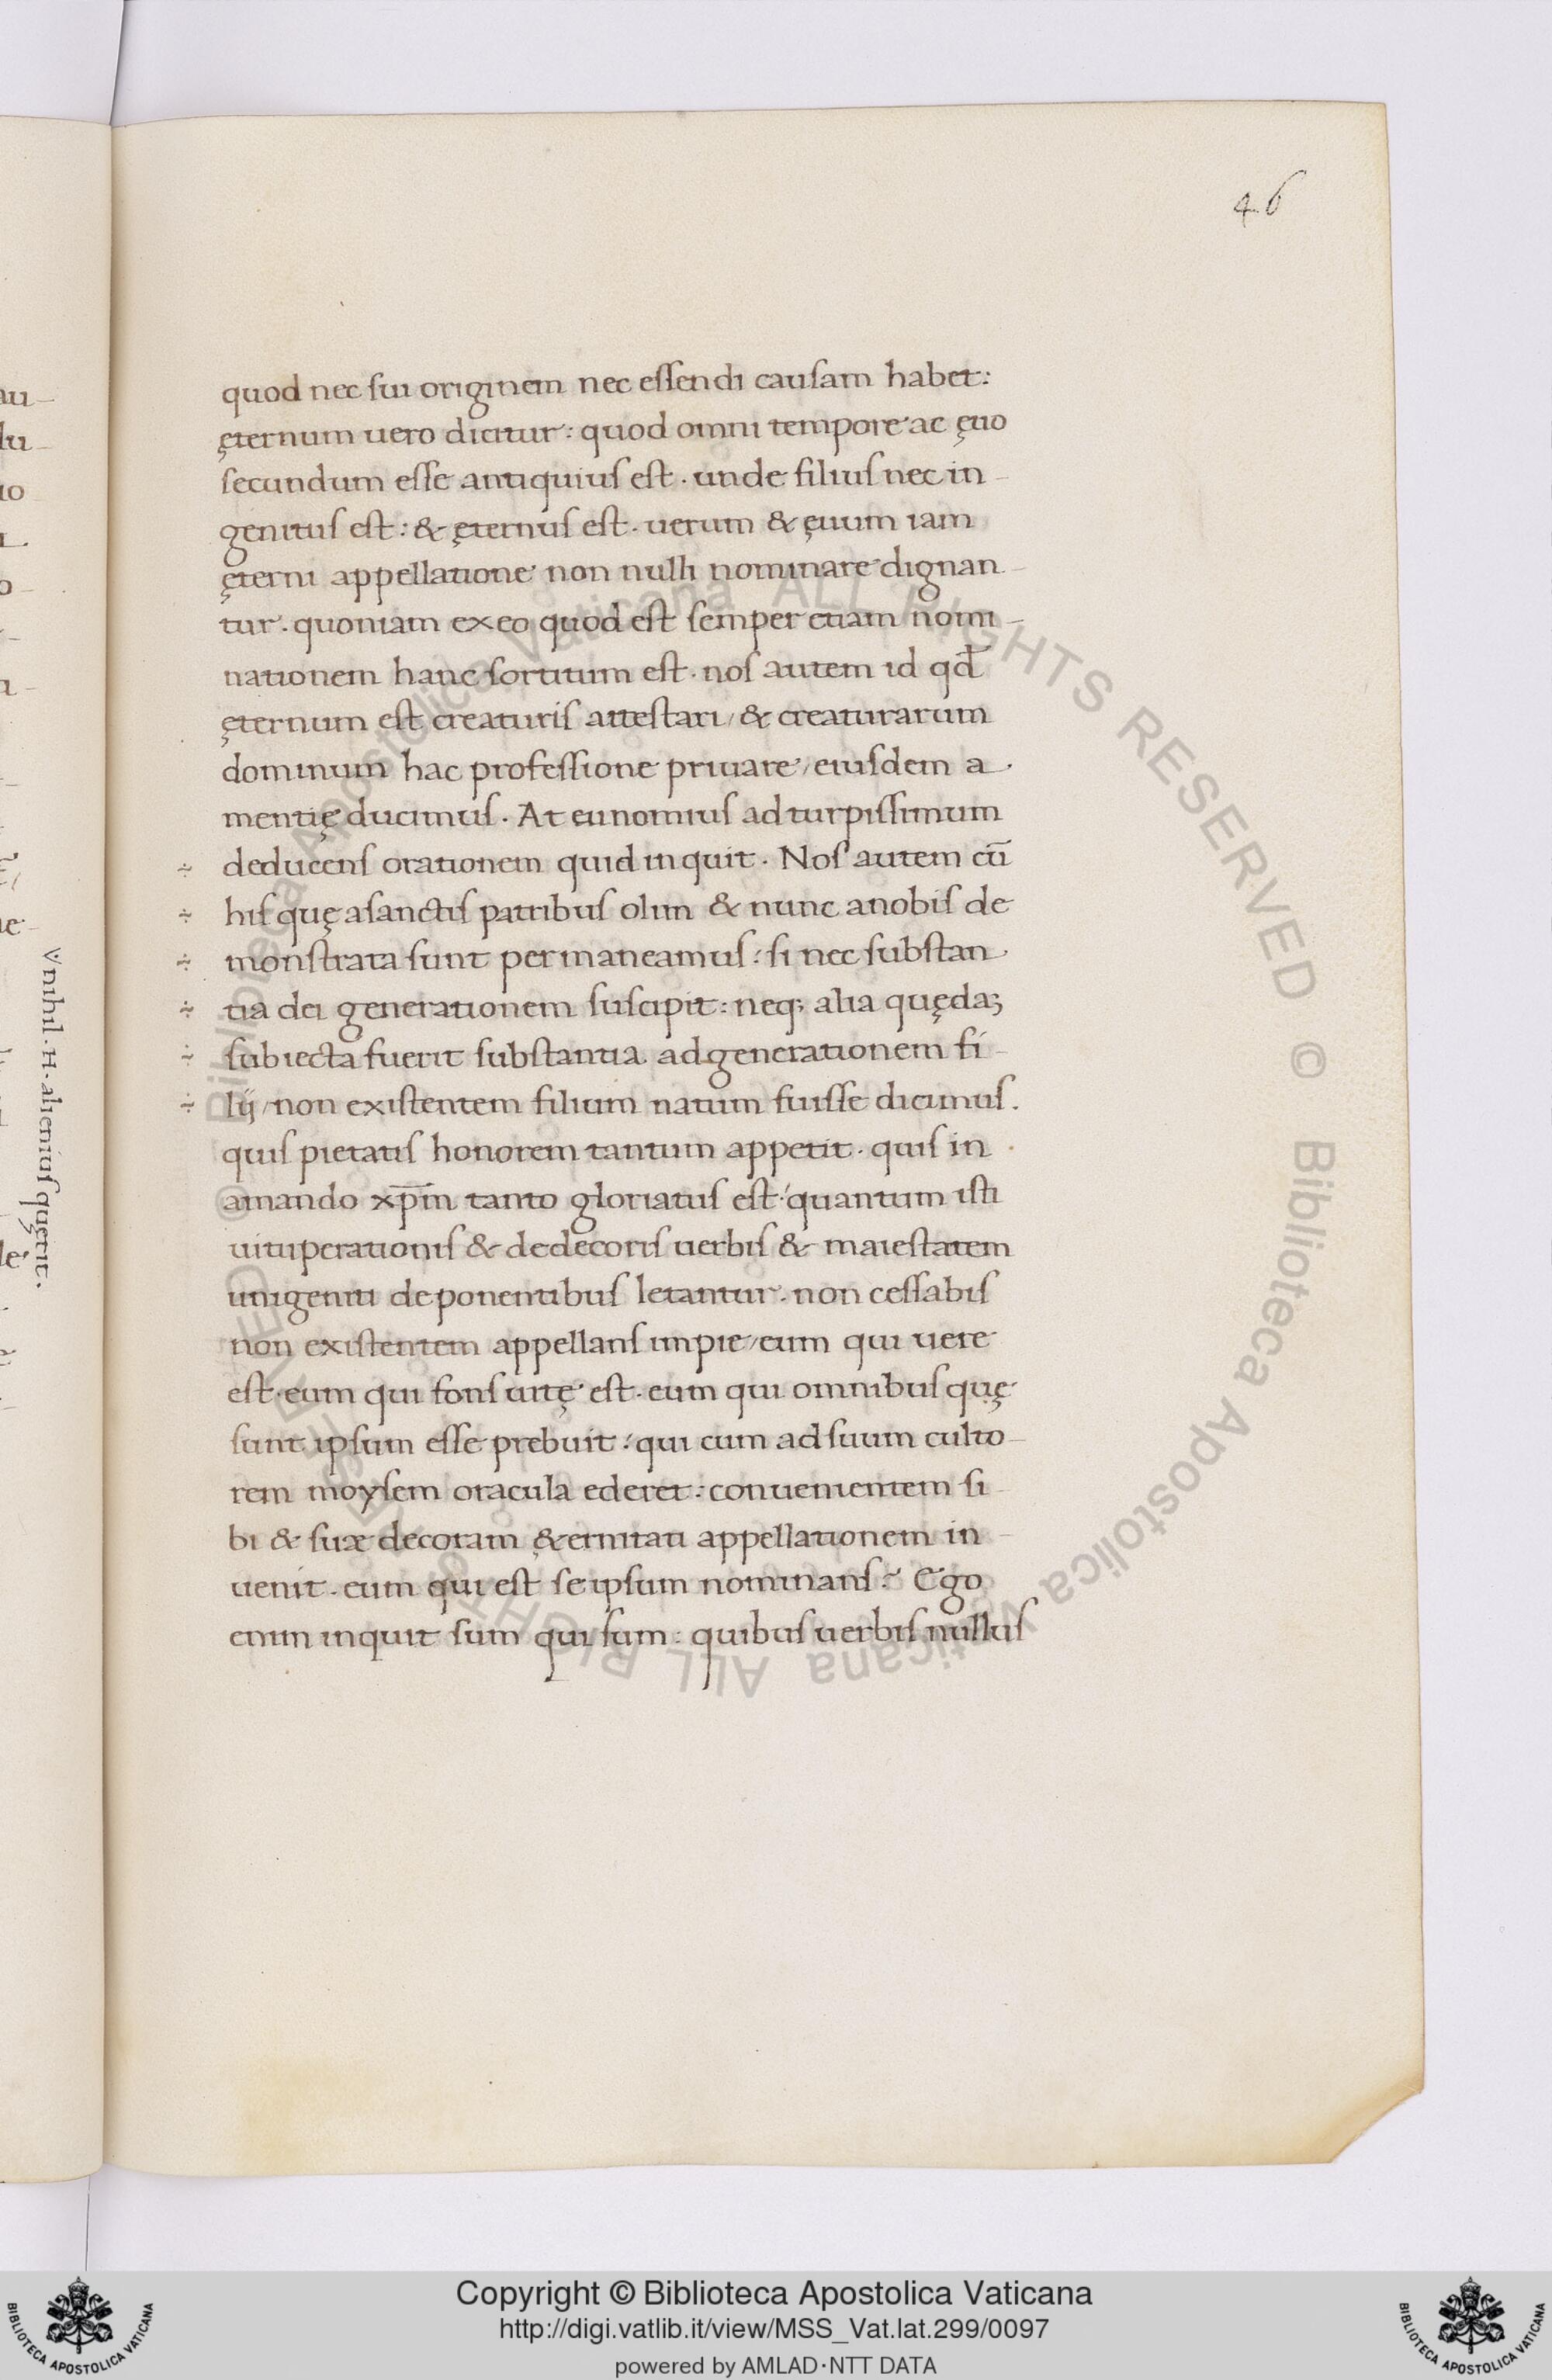 46
quod nec sui originem nec essendi causam habet:
ęternum uero dicitur: quod omni tempore ac ęuo
secundum esse antiquius est. unde filius nec in-
genitus est: & ęternus est. uerum & ęuum iam
ęterni appellatione non nulli nominare dignan-
tur. quoniam ex eo quod est semper etiam nomi-
nationem hanc sortitum est. nos autem id qd̄
ęternum est creaturis attestari/ & creaturarum
dominum hac professione priuare/ eiusdem a-
mentię ducimus. At eunomius ad turpissimum
÷ deducens orationem quid inquit. Nos autem cū
÷ his quę a sanctis patribus olim & nunc a nobis de
÷ monstrata sunt permaneamus: si nec substan-
÷ tia dei generationem suscipit: neq; alia quędaꝫ
÷ subiecta fuerit substantia ad generationem fi-
÷ lij/ non existentem filium natum fuisse dicimus.
quis pietatis honorem tantum appetit. quis in
amando xp̄m tanto gloriatus est: quantum isti
uituperationis & dedecoris uerbis & maiestatem
unigeniti deponentibus letantur. non cessabis
non existentem appellans impie/ eum qui uere
est. eum qui fons uitę est. eum qui omnibus quę
sunt ipsum esse prebuit: qui cum ad suum culto-
rem moysem oracula ederet: conuenientem si-
bi & suæ decoram ę&ernitati appellationem in-
uenit. eum qui est se ipsum nominans: Ego
enim inquit sum qui sum: quibus uerbis nullus
nihil. H. alienius quęrit.
© Biblioteca Apostolica Vaticana ALL RIGHTS RESERVED © Biblioteca Apostolica Vaticana ALL RIGHTS RESERVED
Copyright © Biblioteca Apostolica Vaticana
http://digi.vatlib.it/view/MSS_Vat.lat.299/0097
powered by AMLAD·NTT DATA
BIBLIOTECA APOSTOLICA VATICANA
BIBLIOTECA APOSTOLICA VATICANA